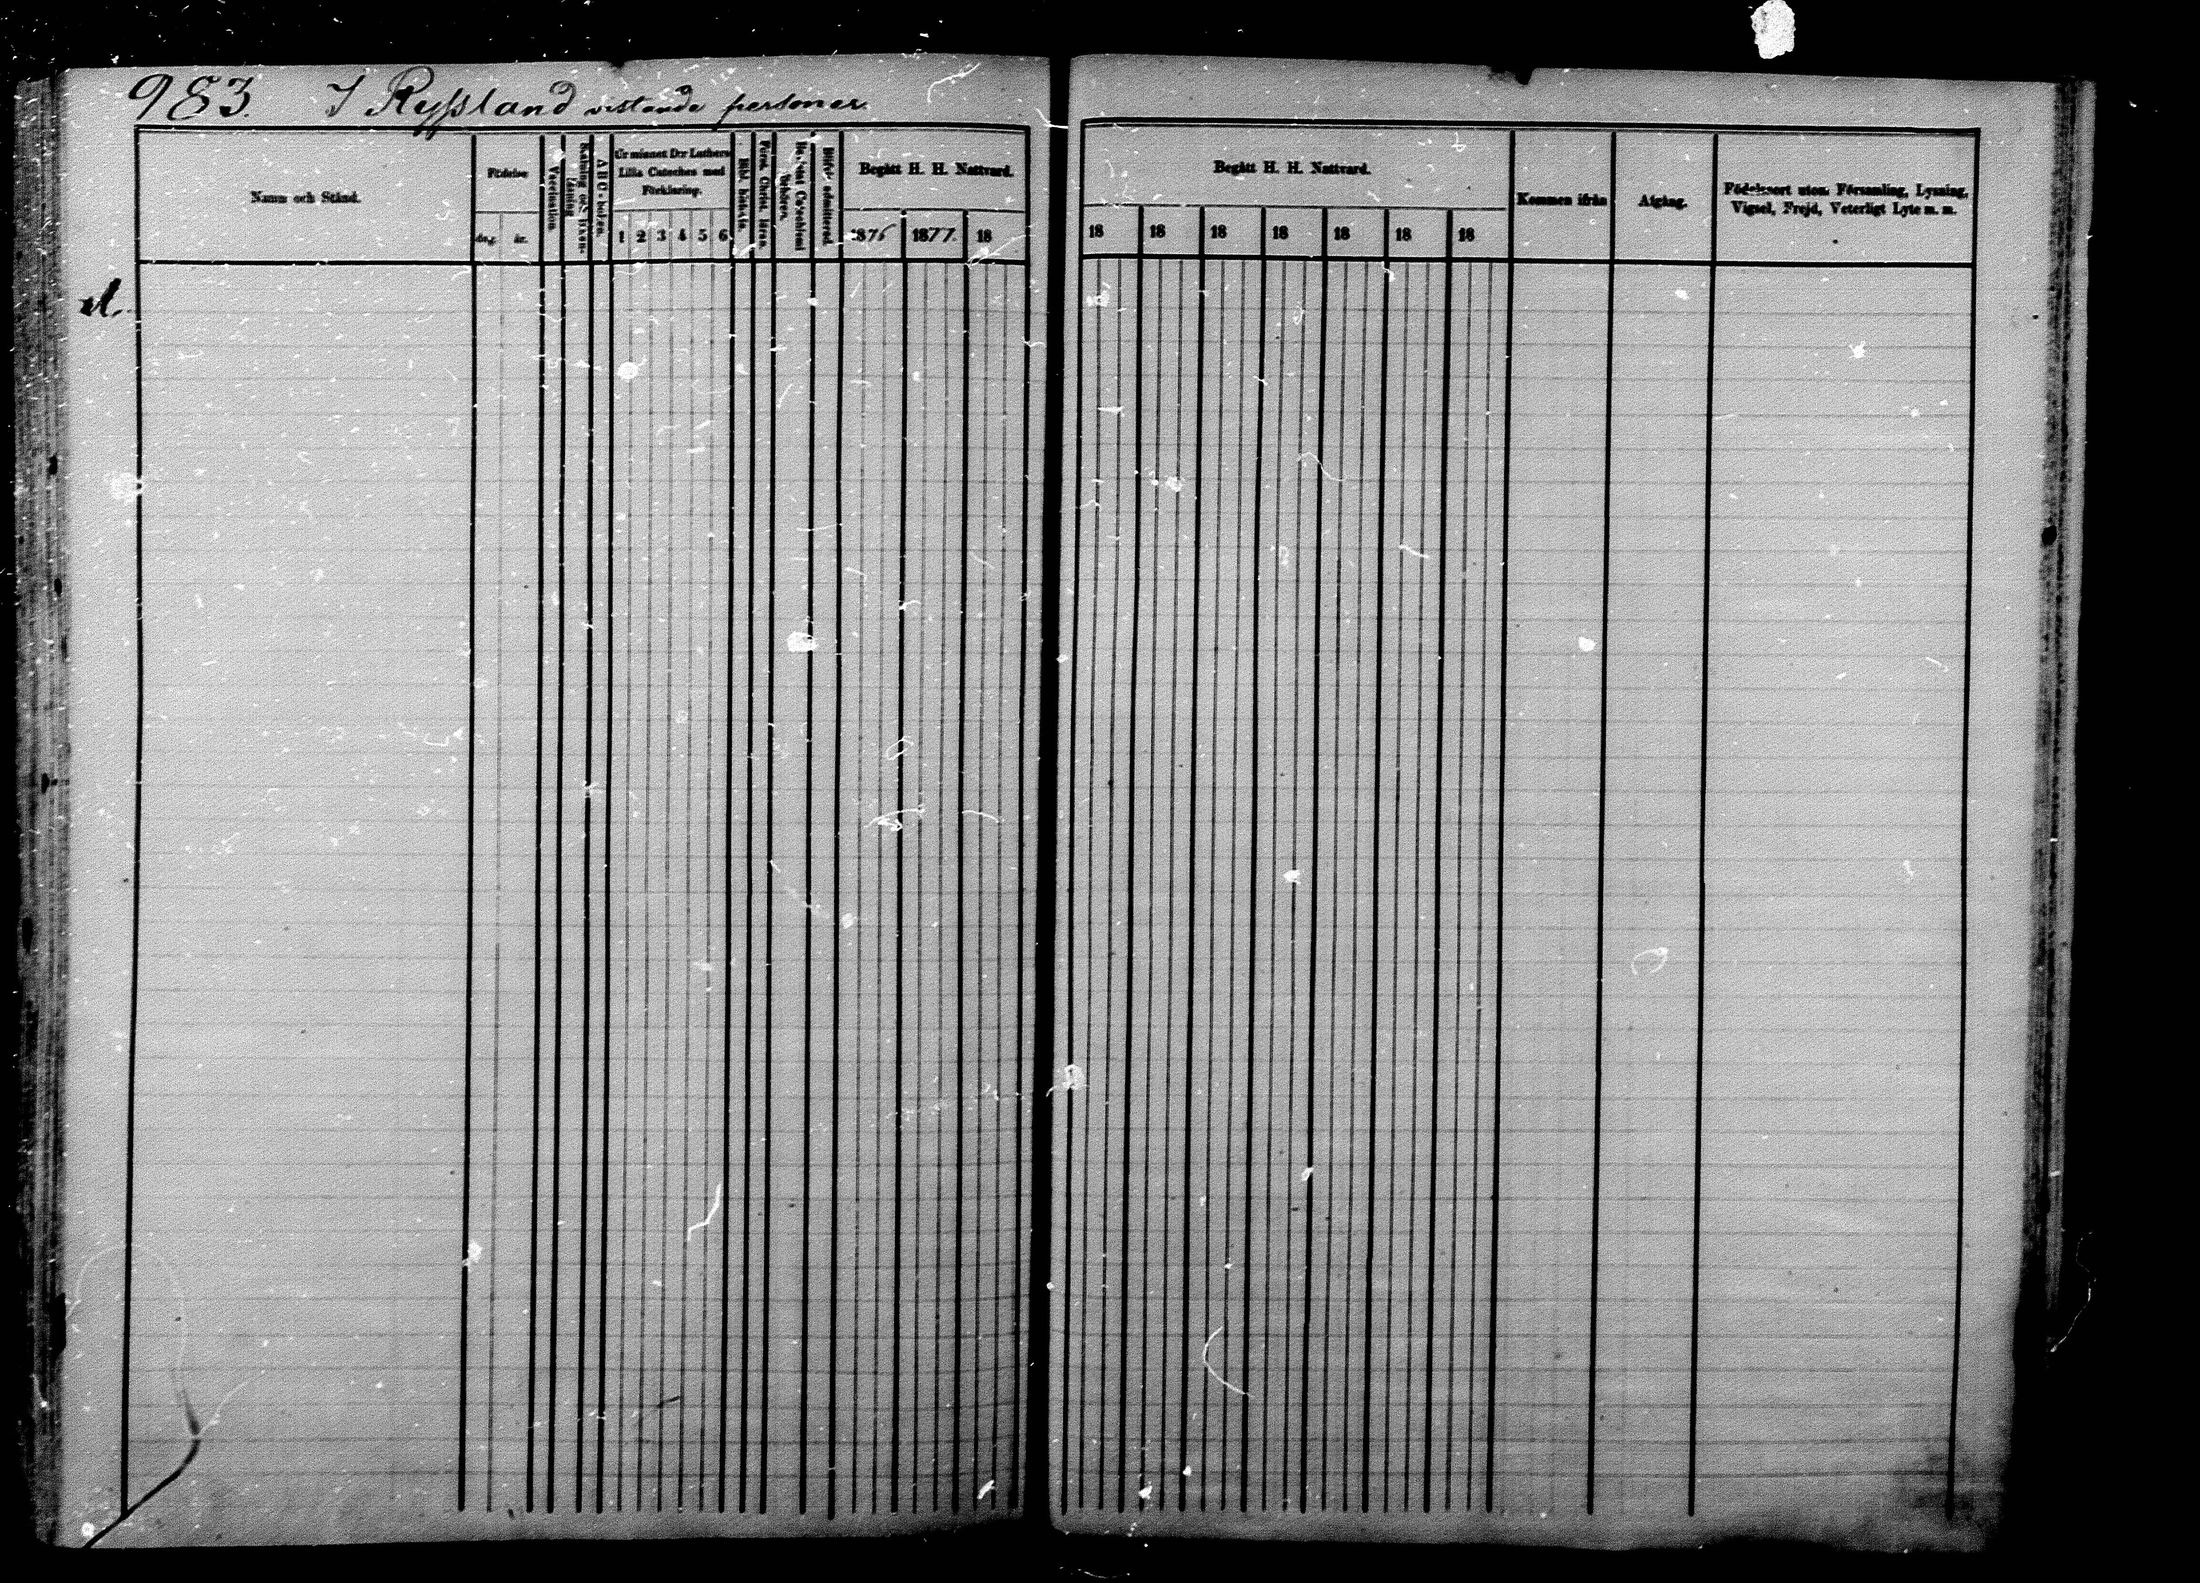 983. I Ryssland vistande personer.
Namn och Stånd.
Födelse
dag. år.
Vaccination.
A B C-boken.
Ur minnet D:r Luthers
Lilla Cateches med
Förklaring.
1 2 3 4 5 6
Bibl. historia.
Först. Christ. läran.
Blifvit admitterad.
Begått H. H. Nattvard.
1876 1877. 18
Begått H. H. Nattvard.
18 18 18 18 18 18 18
Kommen ifrån
Afgång.
Födelseort utom Församling, Lysning,
Vigsel, Frejd, Veterligt Lyte m. m.